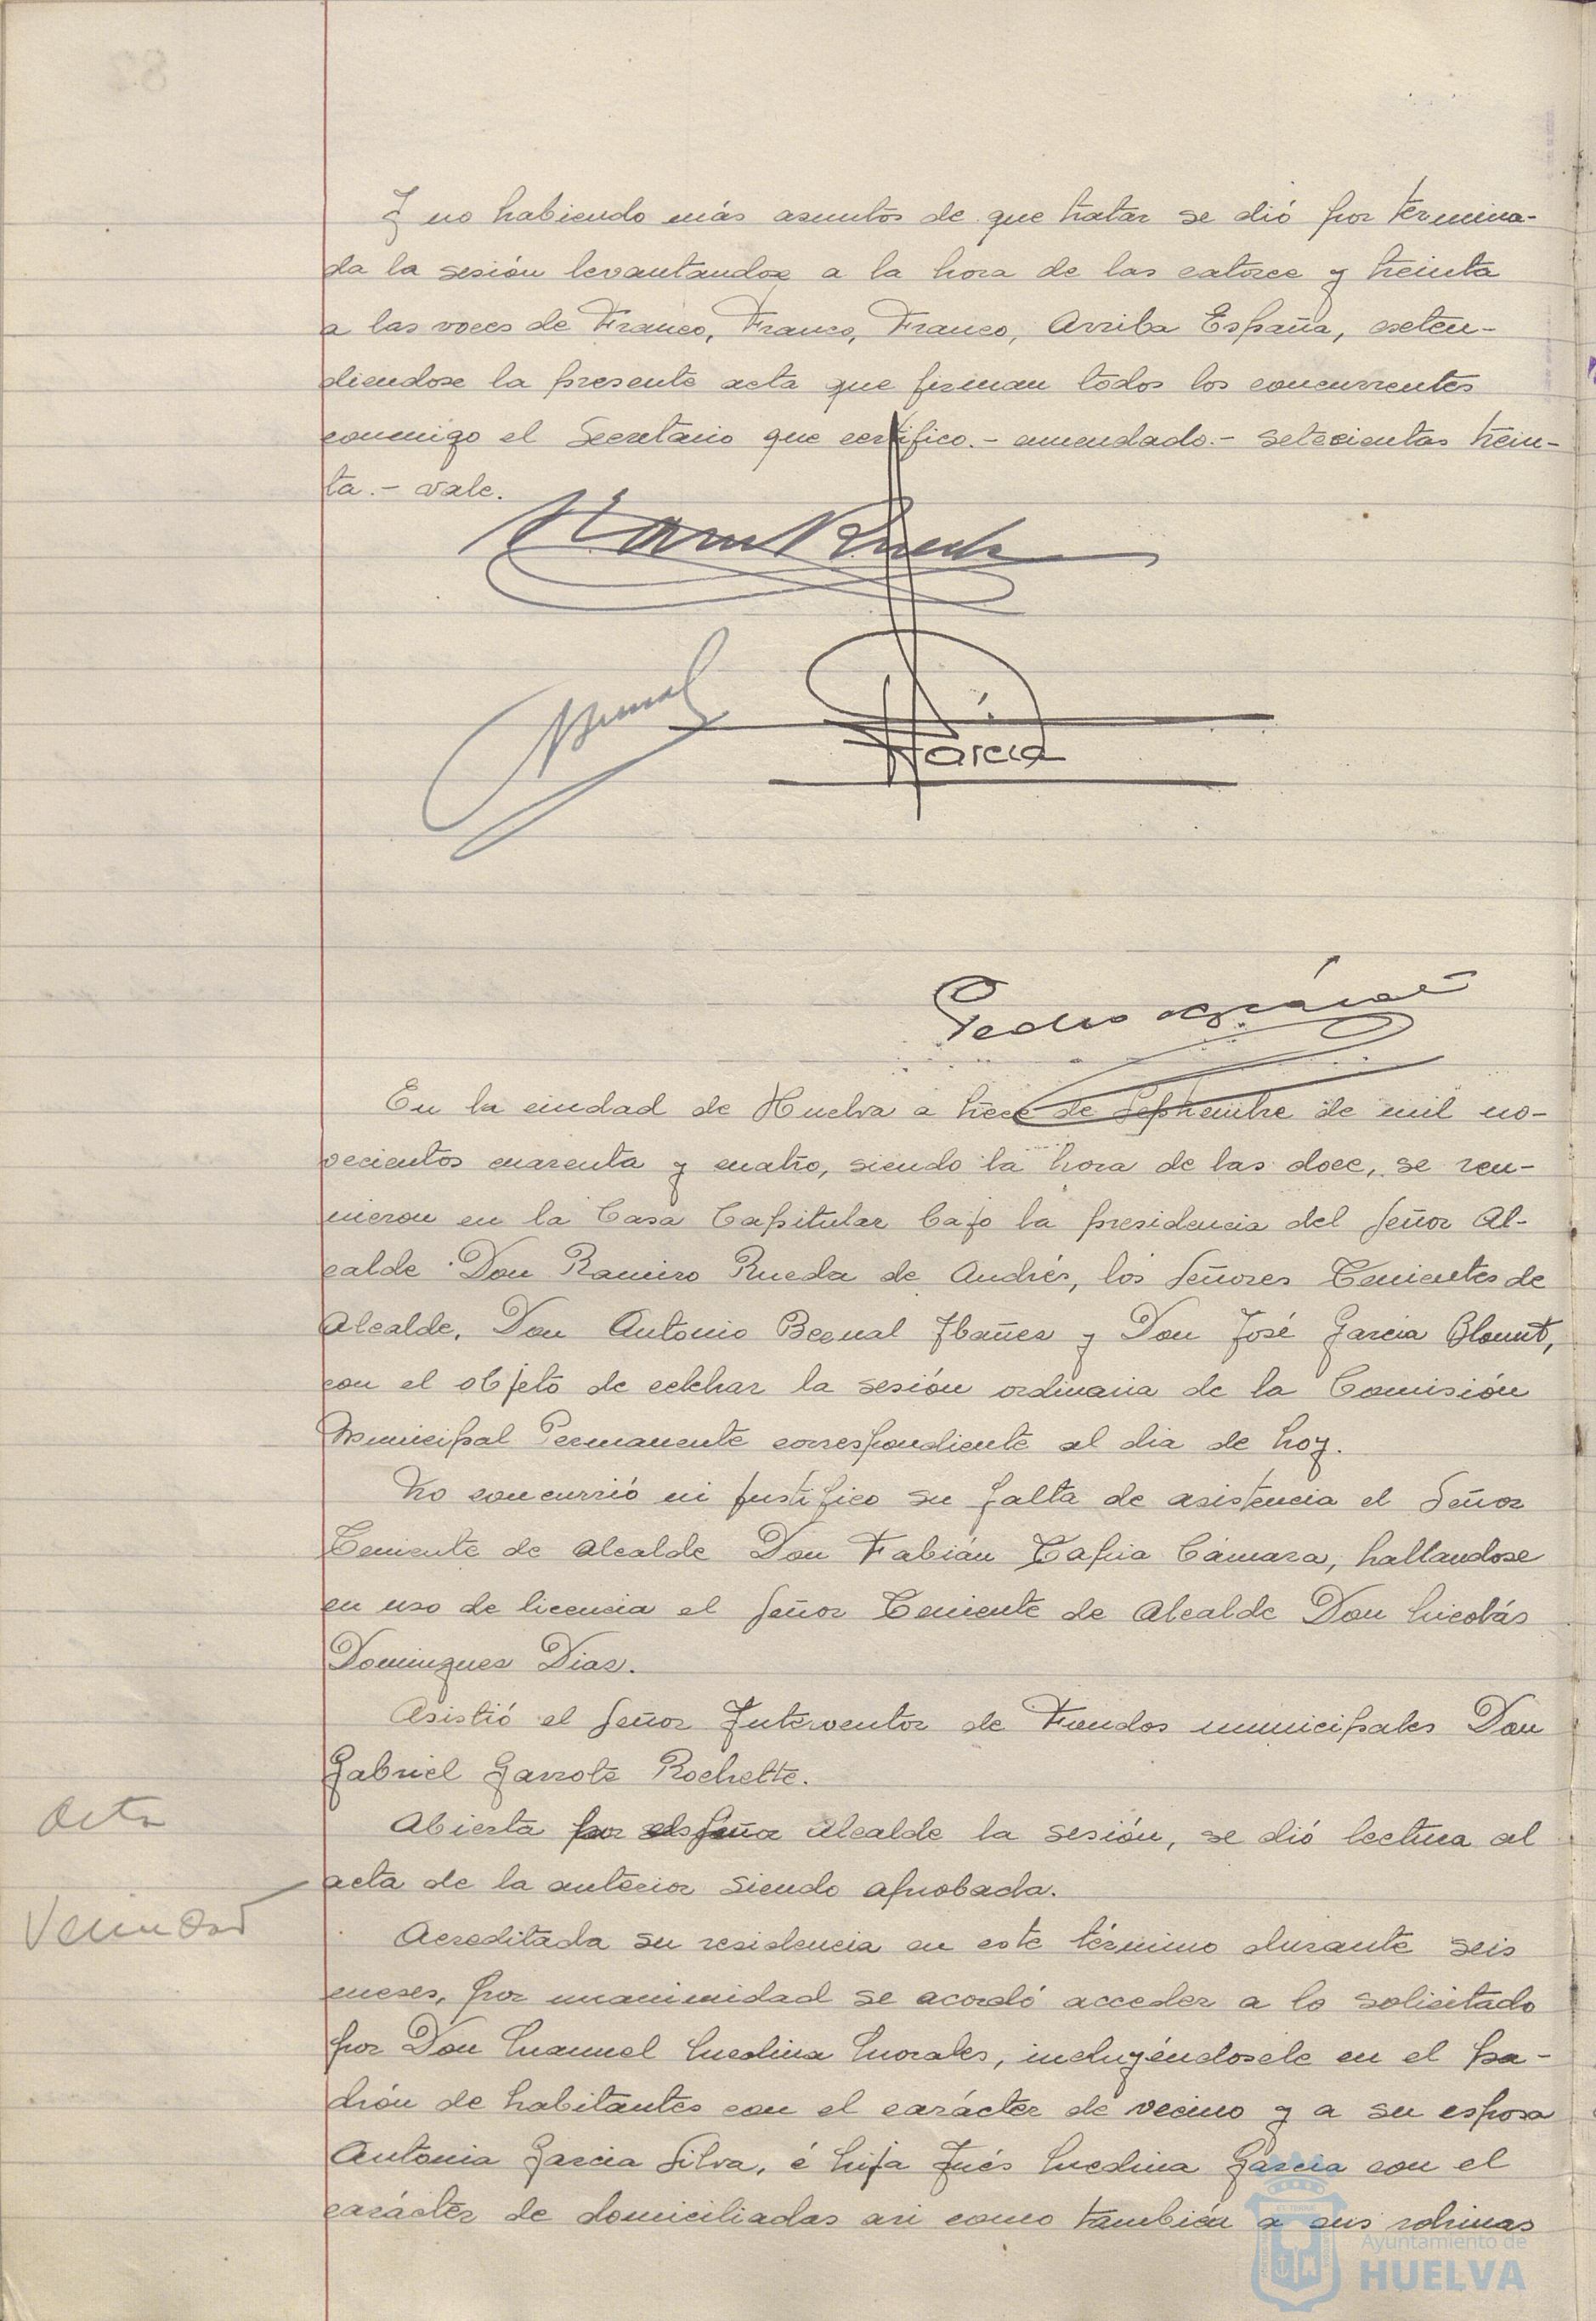 Y no habiendo más asuntos de que tratar se dió por termina-
da la sesión levantandose a la hora de las catorce y treinta
a las voces de Franco, Franco, Franco, Arriba España, exten-
diendose la presente acta que firman todos los concurrentes
conmigo el Secretario que certifico.- enmendado.- setecientas trein-
ta.- vale.
Bernal
García
Pedro
En la ciudad de Huelva a trece de Septiembre de mil no-
vecientos cuarenta y cuatro, siendo la hora de las doce, se reu-
nieron en la Casa Capitular bajo la presidencia del Señor Al-
calde Don Ramiro Rueda de Andrés, los Señores Tenientes de
Alcalde, Don Antonio Bernal Ibañez y Don José Garcia Blount,
con el objeto de celebrar la sesión ordinaria de la Comisión
Municipal Permanente correspondiente al dia de hoy.
No concurrió ni justifico su falta de asistencia el Señor
Teniente de Alcalde Don Fabián Tapia Cámara, hallandose
en uso de licencia el Señor Teniente de Alcalde Don Nicolás
Dominguez Diaz.
Asistió el Señor Interventor de Fondos municipales Don
Gabriel Garrote Rochette.
Acta
Abierta por el Señor Alcalde la sesión, se dió lectura al
acta de la anterior siendo aprobada.
Vecindad
Acreditada su residencia en este término durante seis
meses, por unanimidad se acordó acceder a lo solicitado
por Don Manuel Medina Morales, incluyéndosele en el pa-
drón de habitantes con el carácter de vecino y a su esposa
Antonia Garcia Silva, é hija Inés Medina Garcia con el
carácter de domiciliadas asi como también a sus sobrinas
Ayuntamiento de
HUELVA